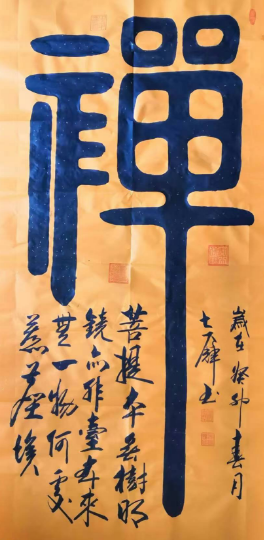 禪
歲在癸卯春月
菩提本無樹明
鏡亦非臺本來
無一物何處
惹塵埃